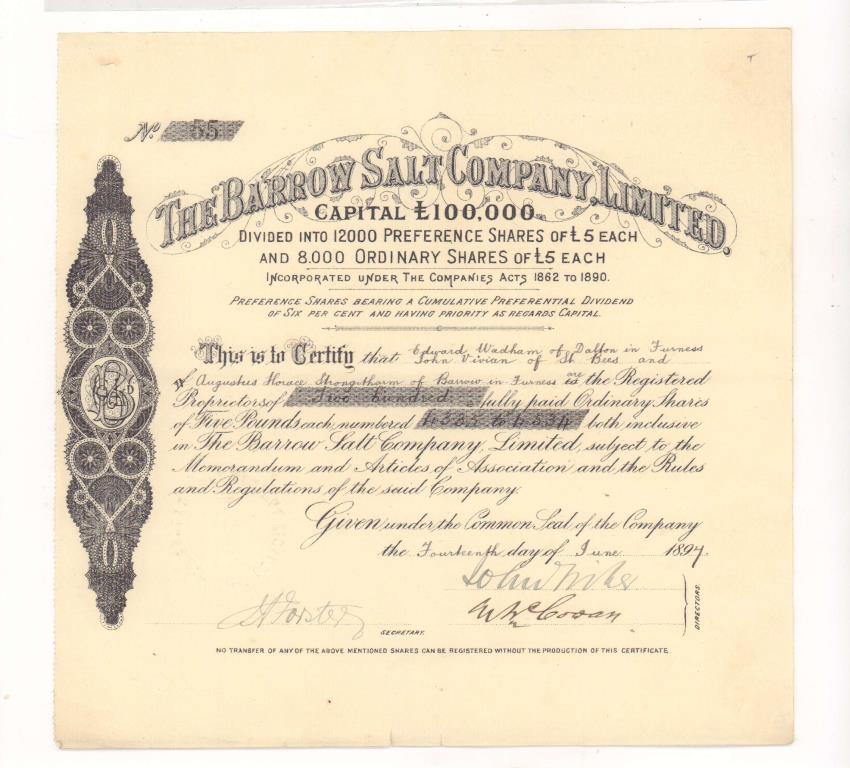 No 55
THE BARROW SALT COMPANY, LIMITED.
CAPITAL £100,000.
DIVIDED INTO 12000 PREFERENCE SHARES OF £5 EACH
AND 8,000 ORDINARY SHARES OF £5 EACH
INCORPORATED UNDER THE COMPANIES ACTS 1862 TO 1890.
PREFERENCE SHARES BEARING A CUMULATIVE PREFERENTIAL DIVIDEND
OF SIX PER CENT AND HAVING PRIORITY AS REGARDS CAPITAL.
This is to Certify that Edward Wadham of Dalton in Furness
John Vivian of St Bees and
Augustus Horace Strongitharm of Barrow in Furness are the Registered
Proprietors of Two hundred fully paid Ordinary Shares
of Five Pounds each, numbered to both inclusive
in The Barrow Salt Company, Limited, subject to the
Memorandum and Articles of Association and the Rules
and Regulations of the said Company.
Given under the Common Seal of the Company
the Fourteenth day of June 1897.
John
DIRECTORS.
J Forster
McCowan
SECRETARY.
NO TRANSFER OF ANY OF THE ABOVE MENTIONED SHARES CAN BE REGISTERED WITHOUT THE PRODUCTION OF THIS CERTIFICATE.